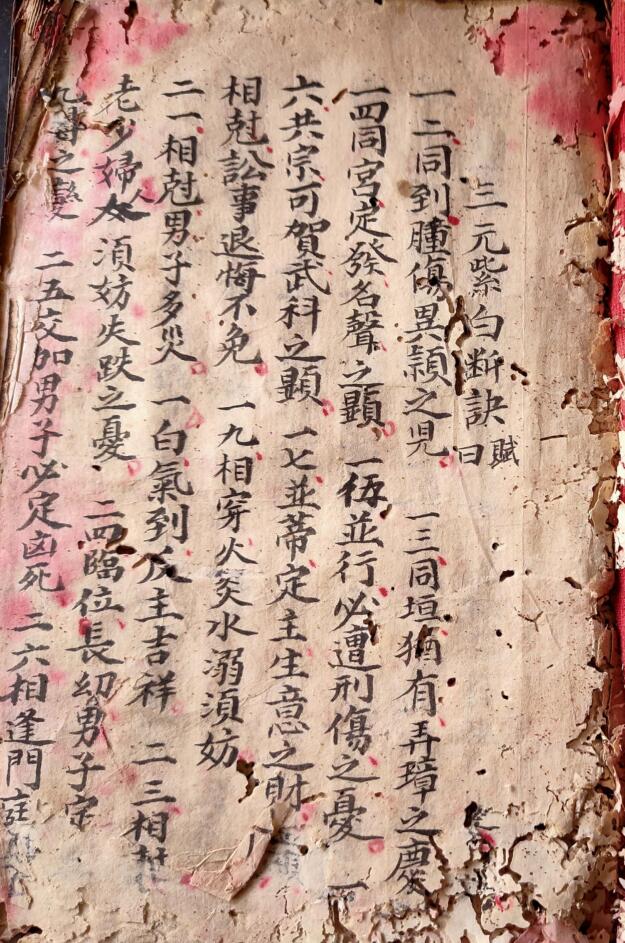 三元紫白断訣 賦曰
一二同到腫傷異顙之児 一三同垣猶有弄璋之慶
一四同宮定發名聲之顯 一伍並行必遭刑傷之憂 一
六共宗可賀武科之顕 一七並蒂定主生意之財
相尅訟事退悔不免 一九相穿火災水溺須妨
二一相尅男子多災 一白氣到反主吉祥 二三相尅
老少婦人 須妨失跌之憂 二四臨位長幼男子定
之變 二五交加男子必定凶死 二六相逢門庭